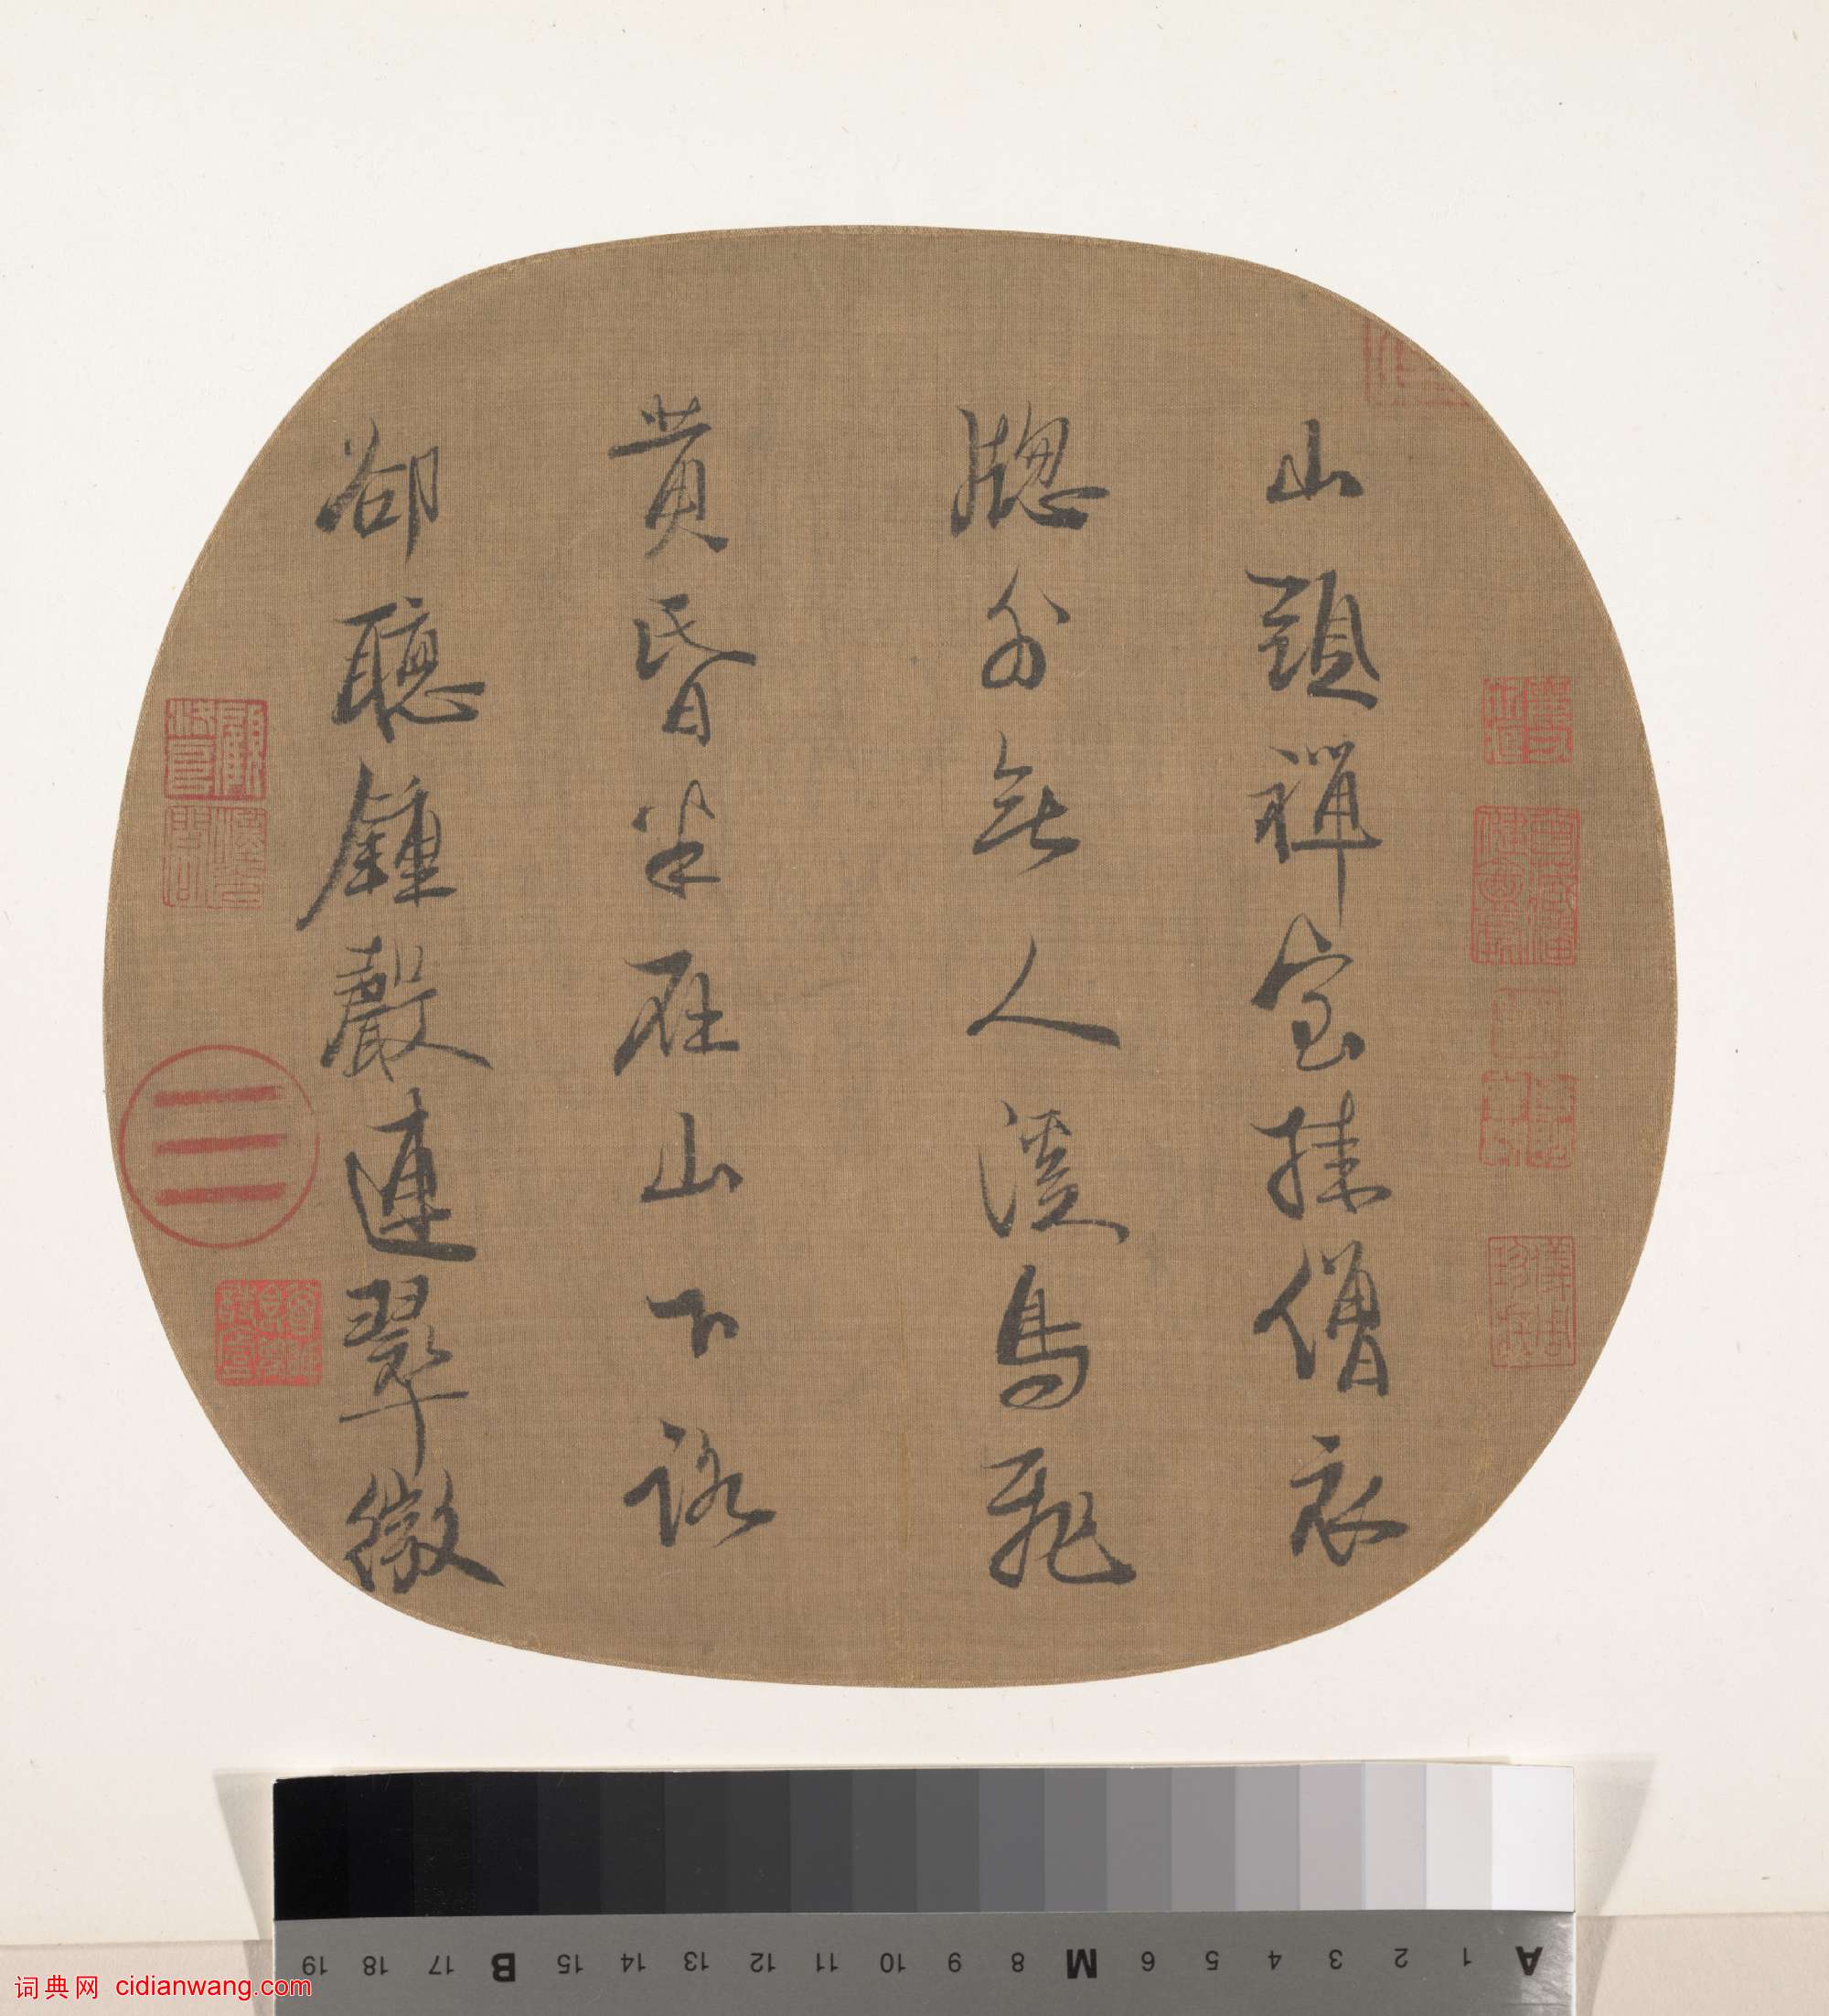 山頭禪室挂僧衣
牎外無人溪鳥飛
黄昏半在山下路
却聽鍾聲連翠微
A 1 2 3 4 5 6 M 8 9 10 11 12 13 14 15 B 17 18 19
词典网 cidianwang.com